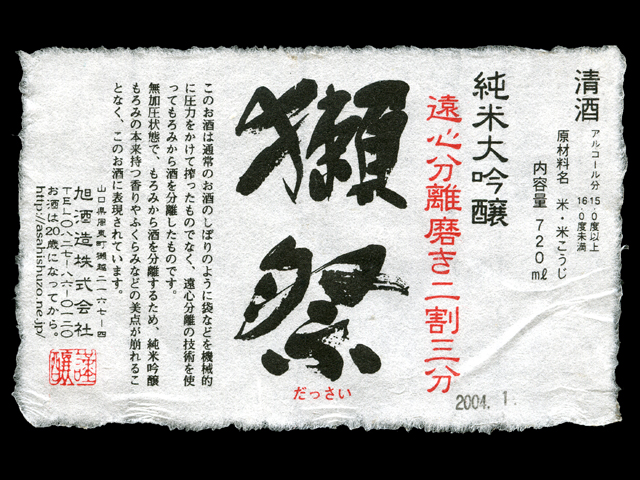 清酒
アルコール分
15.0度以上
16.0度未満
原材料名 米・米こうじ
内容量 720㎖
純米大吟醸
遠心分離磨き二割三分
獺祭
だっさい
2004. 1.
このお酒は通常のお酒のしぼりのように袋などを機械的
に圧力をかけて搾ったものでなく、遠心分離の技術を使
ってもろみから酒を分離したものです。
無加圧状態で、もろみから酒を分離するため、純米吟醸
もろみの本来持つ香りやふくらみなどの美点が崩れるこ
となく、このお酒に表現されています。
旭酒造株式会社
山口県周東町獺越二一六七ー四
TEL〇八二七ー八六ー〇一二〇
お酒は20歳になってから。
http://asahishuzo.ne.jp/